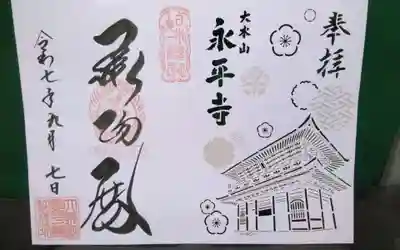 奉拝
大本山
永平寺
承陽殿
令和七年九月七日